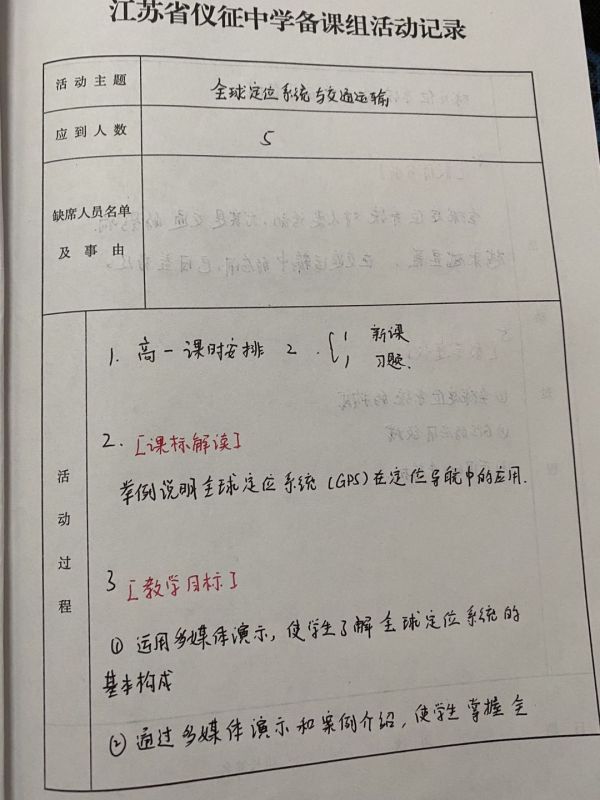 江苏省仪征中学备课组活动记录
活动主题
全球定位系统与交通运输
应到人数
5
缺席人员名单
及事由
活动过程
1. 高一课时安排 2. { 1 新课
1 习题.
2. [课标解读]
举例说明全球定位系统(GPS)在定位导航中的应用.
3 [教学目标]
① 运用多媒体演示，使学生了解全球定位系统的
基本构成
② 通过多媒体演示和案例介绍，使学生掌握全